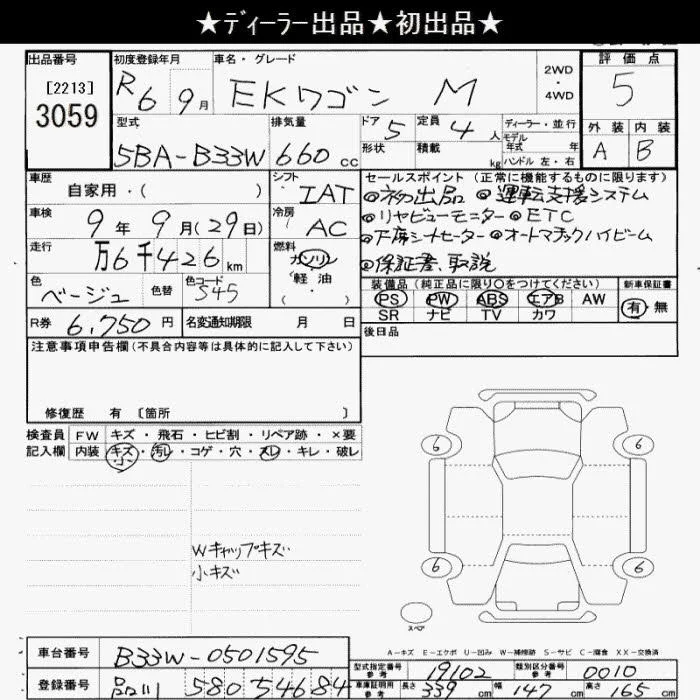 ★ディーラー出品★初出品★
出品番号 初度登録年月 車名・グレード 2WD・4WD 評価点
[2213] R6 9月 EKワゴン M 5
3059
型式 排気量 ドア 定員 ディーラー・並行 外装 内装
5BA-B33W 660cc 5 4人 モデル年式 年 A B
形状 積載 kg ハンドル 左・右
車歴 シフト セールスポイント (正常に機能するものに限ります)
自家用・( ) IAT ◎初出品 ◎運転支援システム
車検 冷房 ◎リヤビューモニター ◎ETC
9年 9月(29日) AC ◎下席シートヒーター ◎オートマチックハイビーム
走行 燃料 ◎保証書、取説
万6千426km ガソリン
軽油
( )
色 色替 色コード 装備品 (純正品に限り○をつけてください) 新車保証書
ベージュ S45 PS PW ABS エアB AW 有・無
SR ナビ TV カワ
R券 6,750円 名変通知期限 月 日 後日品
注意事項申告欄 (不具合内容等は具体的に記入して下さい)
修復歴 有 〔箇所 〕
検査員 FW キズ・飛石・ヒビ割・リペア跡・×要
記入欄 内装 キズ・汚レ・コゲ・穴・スレ・キレ・破レ
小
6 6
Wキャップキズ
小キズ
6 6
スペア
A-キズ E-エクボ U-凹み W-補修跡 S-サビ C-腐食 XX-交換済
車台番号 B33W-0501595 型式指定番号 参考 19102 類別区分番号 参考 0010
登録番号 品川 580 54684 車庫証明用 参考 長さ 339cm 幅 147cm 高さ 165cm